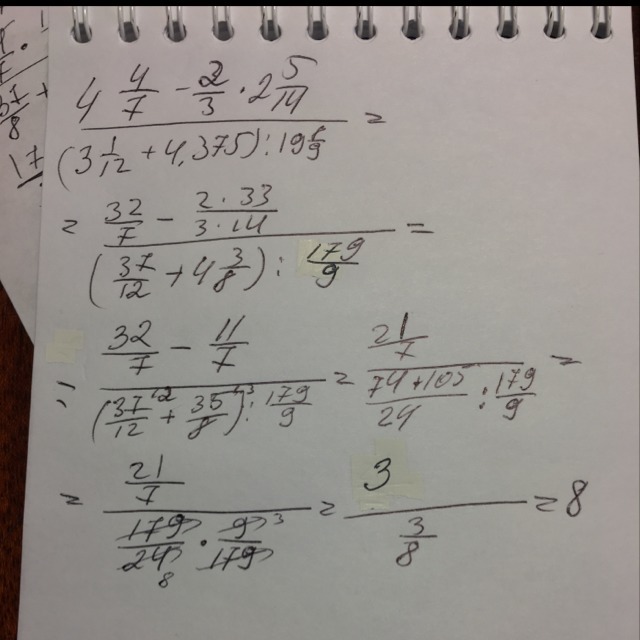 4 4/7 - 2/3 · 2 5/14
(3 1/12 + 4,375) : 19 8/9 =
= 32/7 - 2·33/3·14
(37/12 + 4 3/8) : 179/9 =
= 32/7 - 11/7
(37/12 + 35/8) : 179/9 = 21/7
74+105/24 : 179/9 =
= 21/7
179/24 · 9/179 = 3
3/8 = 8